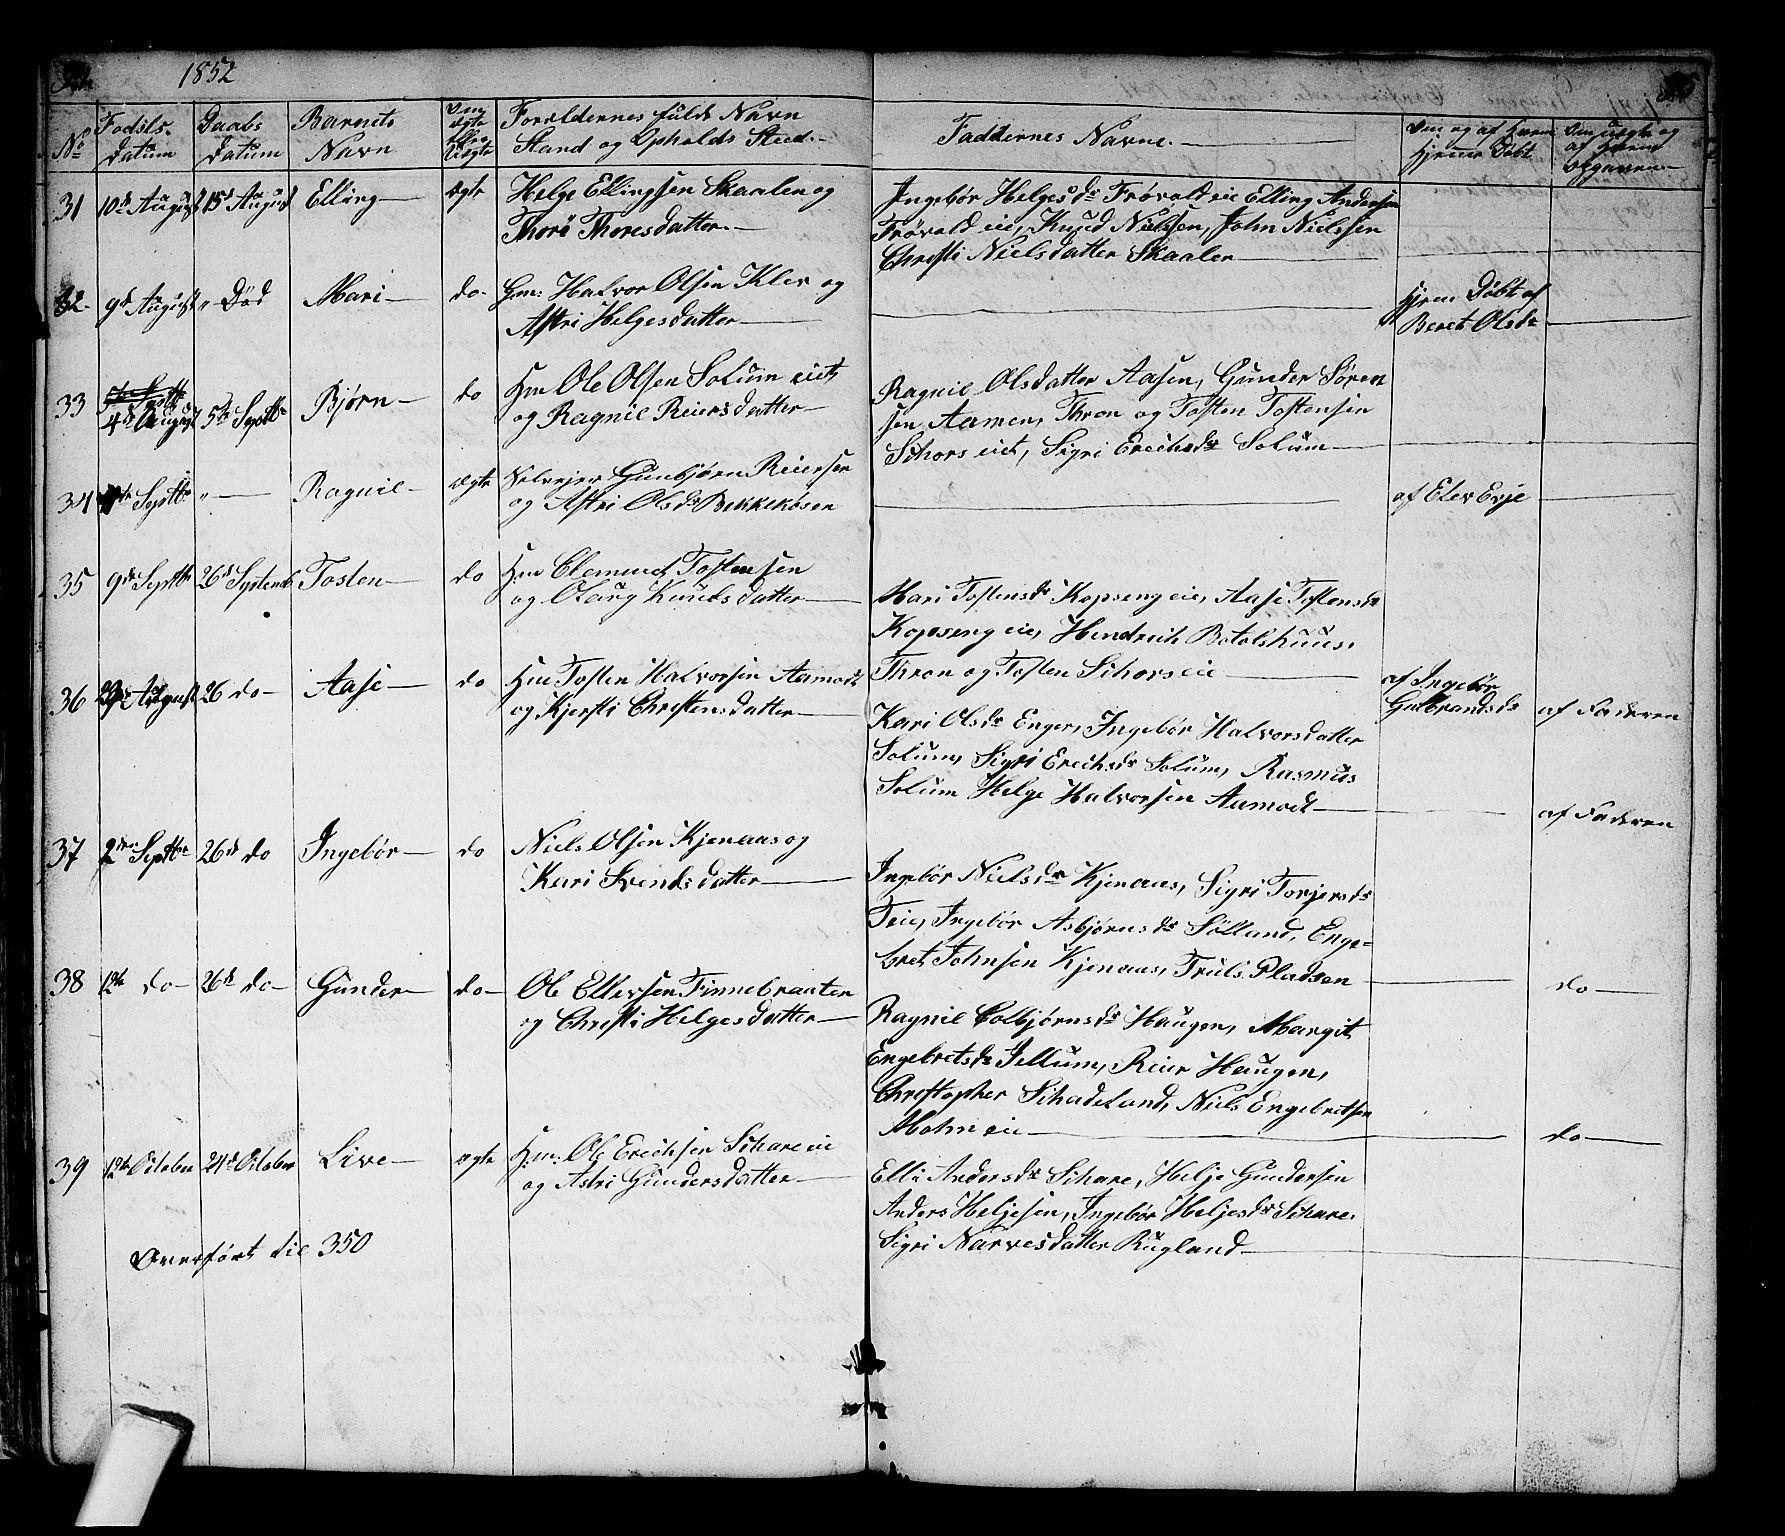 1852
No Fodsels- Daabs Barnets Om ægte eller Uægte Forældernes fulde Navn Faddernes Navne. Om og af hvem Om
Datum Datum Navn Stand og Opholds Sted. hjemme Døbt
31 10de August 15d August Elling ægte Helge Ellingsen Skaalen og
Thorø Thoresdatter.
Ingebør Helgesdr Frøvold eie Elling Andersen
Frøvold eie, Knud Nielssen, John Nielssen
Christi Nielsdatter Skaalen
32 9d August " Død Mari do Gm: Halvor Olsen Klev og
Astri Helgesdatter
hjem Døbt af
Beret Olsdr
33 4d August 5te Septbr Bjørn do Hm Ole Olsen Solum eiet
og Ragnil Reiersdatter
Ragnil Olsdatter Aasen, Gunder Søren
sen Aamen, Thron og Tosten Tostensen
Schors eiet, Sigri Erichsdr Solum
34 Septbr " Ragnil ægte Selvejer Gunbjørn Reiersen
og Astri Olsdr Bekkekosen
af Elev Evje
35 9de Septbr 26d Septemb Tosten do Hm Clemmet Tostensen
og Olaug Knudsdatter
Mari Tostensdr Kopseng eie, Aase Tostensdr
Kopseng eie, Hendrich Botolshuus,
Thron og Tosten Schors eie
af Faderen
36 29de August 26 do Aase do Hm Tosten Halvorsen Aamodt
og Kjersti Christensdatter
Kari Olsdr Enger, Ingebør Halvorsdatter
Solum, Sigri Erichsdr Solum, Rasmus
Solum Helge Halvorsen Aamodt
af Ingebør
Gulbrandsdr
af Faderen
37 2den Septbr 26d do Ingebør do Niels Olsen Kjenaas og
Kari Svendsdatter
Ingebør Nielsdr Kjenaas, Sigri Torjersdr
Teie, Ingebør Asbjørnsdr Sølland, Enge-
bret Johnsen Kjenaas, Truls Pladsen
do
38 12te do 26d do Gunder do Ole Ellevsen Finnebraaten
og Christi Helgesdatter
Ragnil Colbjørnsdr Haugen, Margit
Engebretsdr Jellum, Reier Haugen,
Christopher Schadeland, Niels Engebretsen
Mohn eie
do
39 12te October 21d October Live ægte Hm: Ole Erichsen Schare eie
og Astri Gundersdatter
Elli Andersdr Schare, Helje Gundersen
Anders Heljesen, Ingebør Heljesdr Schare.
Sigri Narvesdatter Rugland
Overført til 350